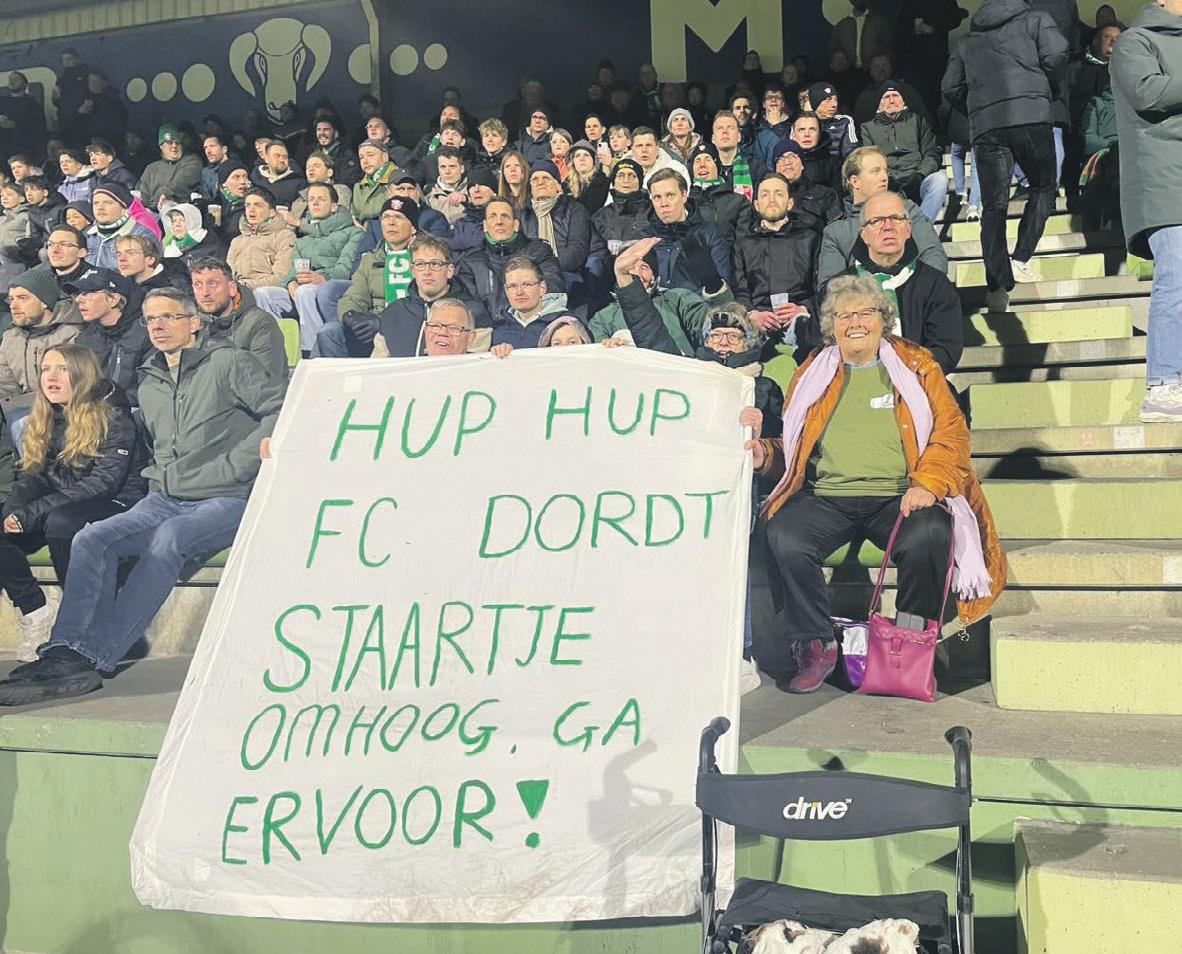 M
FC
HUP HUP
FC DORDT
STAARTJE
OMHOOG. GA
ERVOOR!
drive